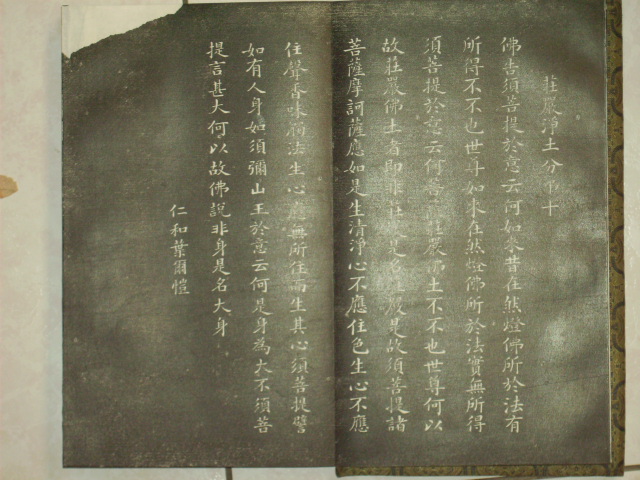 莊嚴淨土分第十
佛告須菩提於意云何如來昔在然燈佛所於法有
所得不不也世尊如來在然燈佛所於法實無所得
須菩提於意云何菩莊嚴佛土不不也世尊何以
故莊嚴佛土者即非莊是名莊嚴是故須菩提諸
菩薩摩訶薩應如是生清淨心不應住色生心不應
住聲香味觸法生心應無所住而生其心須菩提譬
如有人身如須彌山王於意云何是身為大不須菩
提言甚大何以故佛說非身是名大身
仁和葉爾愷